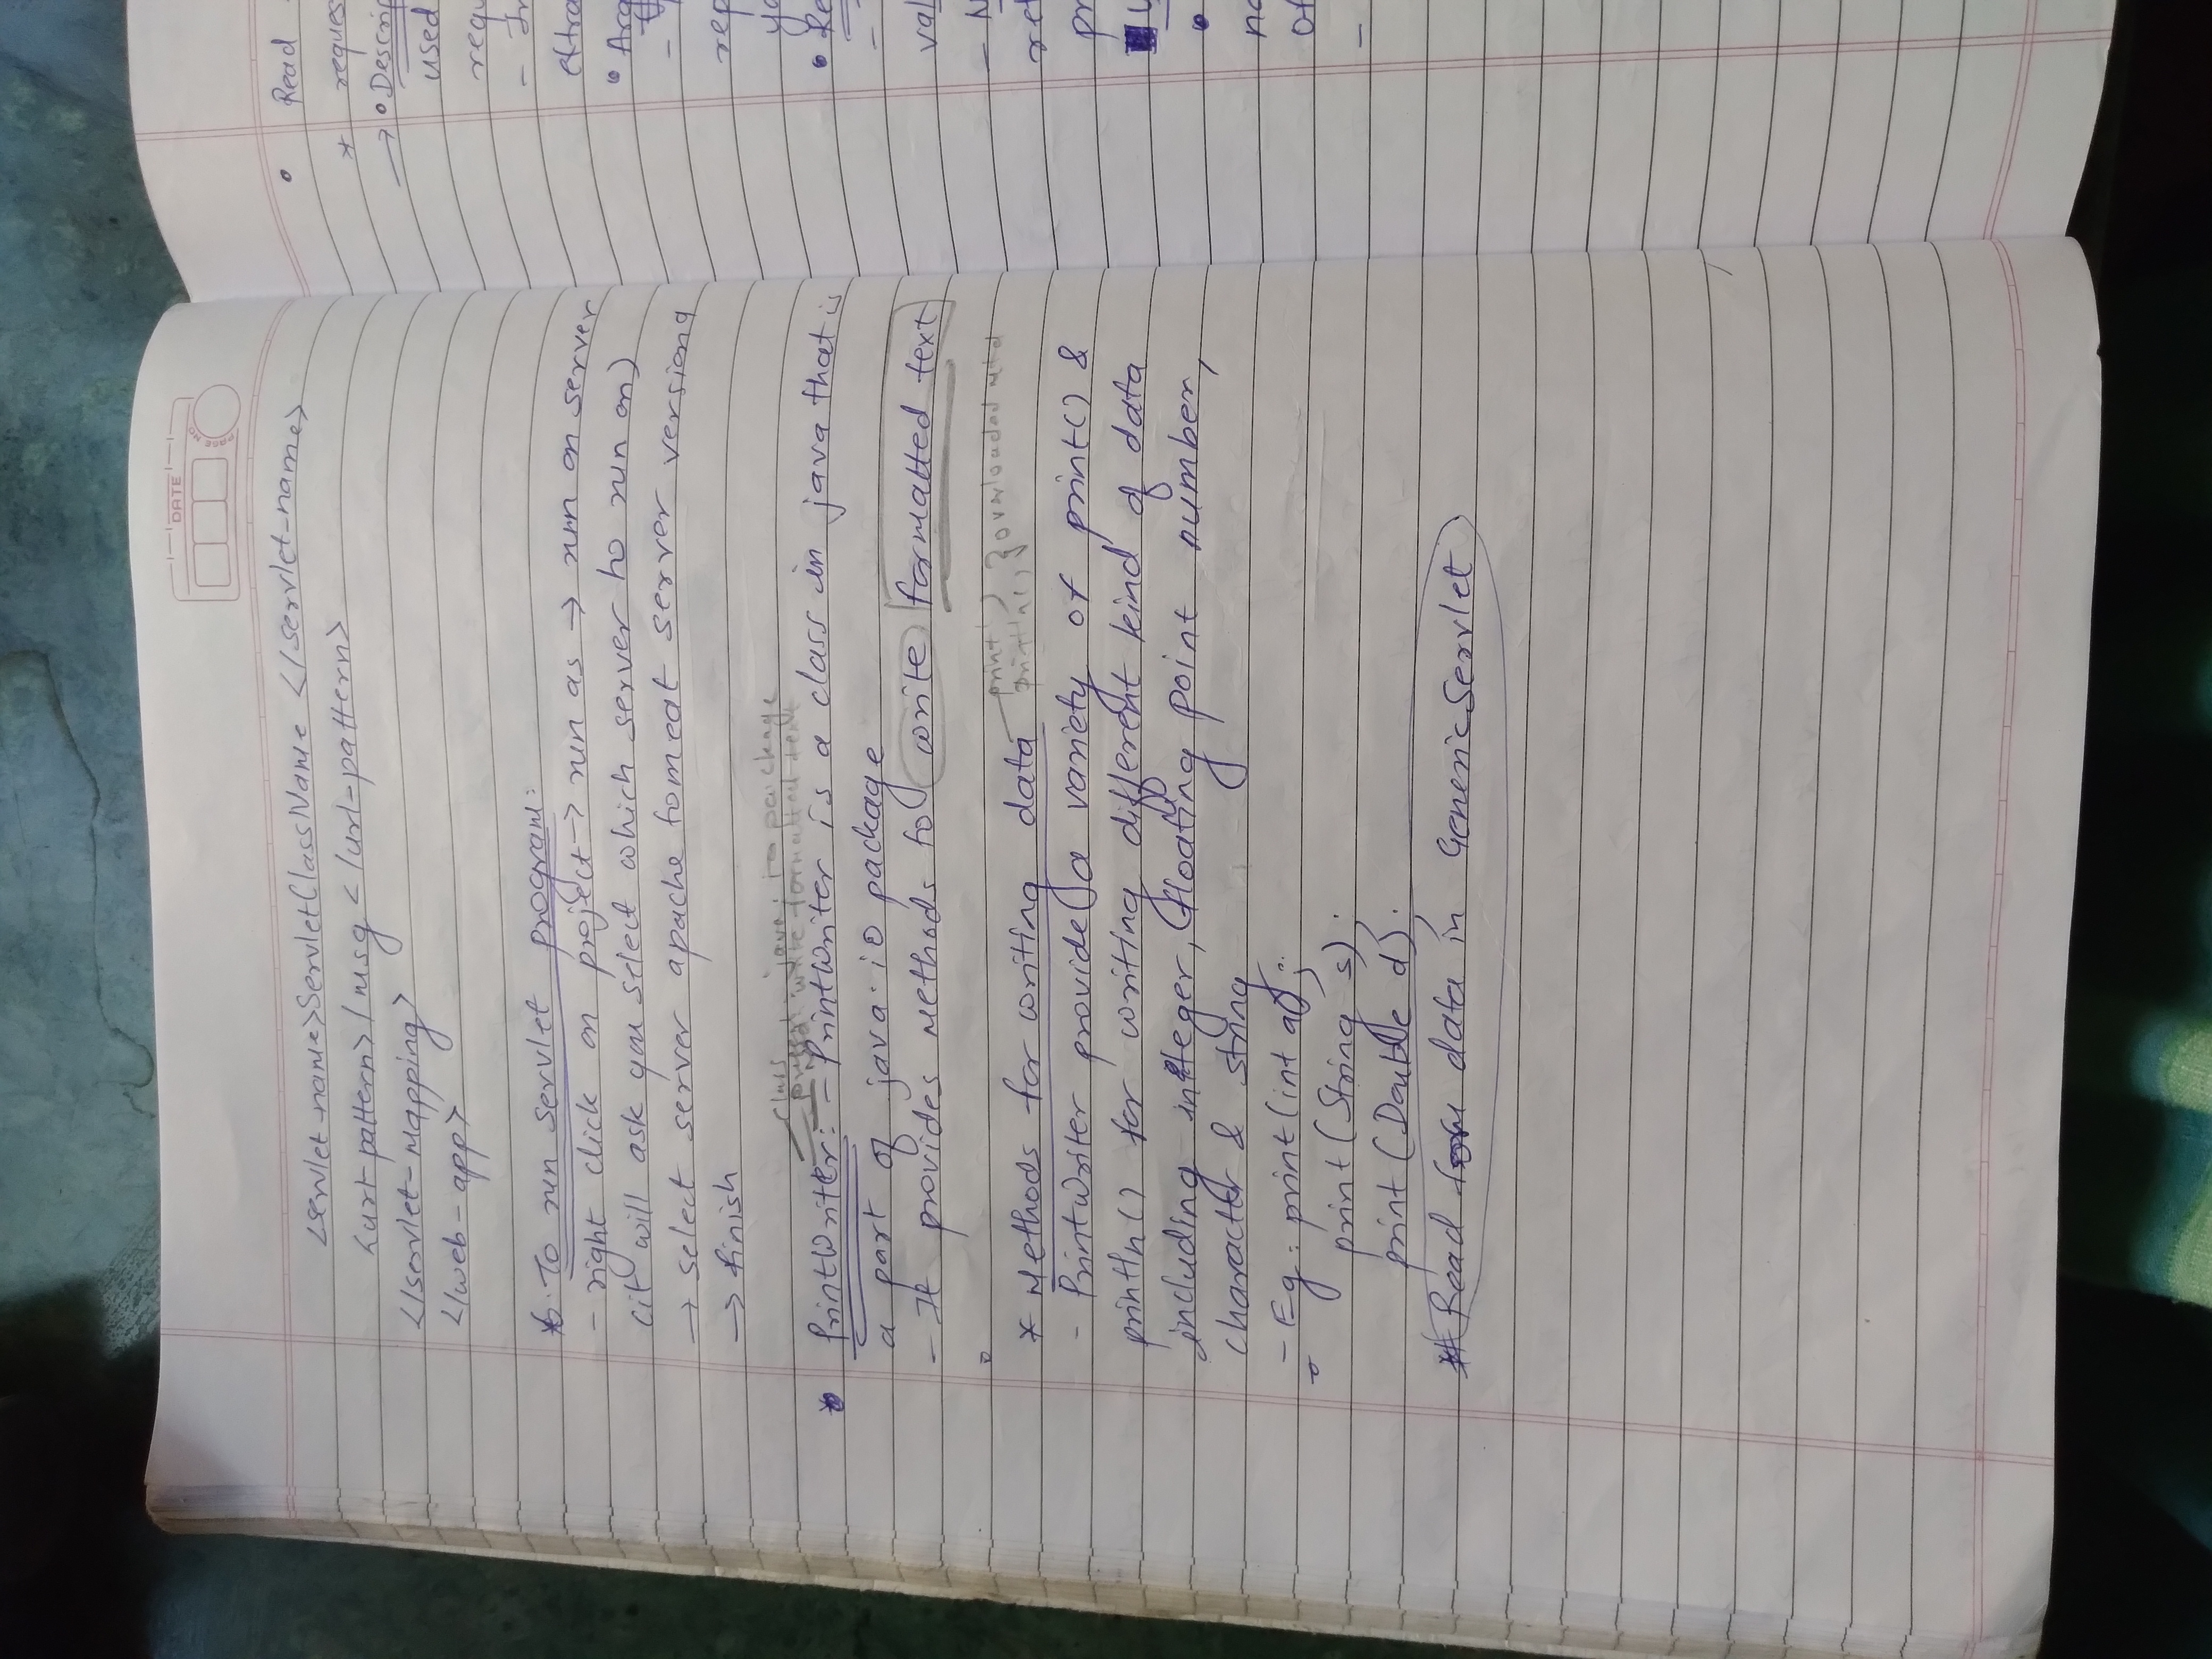 DATE
PAGE NO
<servlet-name>ServletClassName </servlet-name>
<url-pattern>/msg </url-pattern>
</servlet-mapping>
</web-app>
* To run servlet program:
- right click on project → run as → run on server
(it will ask you select which server to run on)
→ select server apache tomcat server version9
→ finish
class java.io package
write formatted text
* PrintWriter: - PrintWriter is a class in java that is
a part of java.io package
- It provides methods to write formatted text
print()
println() } overloaded mtd
* Methods for writing data
- PrintWriter provide a variety of print() &
println() for writing different kind of data
including integer, floating point number,
character & string
- Eg: print(int a);
print(String s);
print(Double d);
* Read form data in GenericServlet
Read
* reques
→ • Descrip
used
requ
extra
• Arg
rep
• Re
val
- N
ret
pr
of